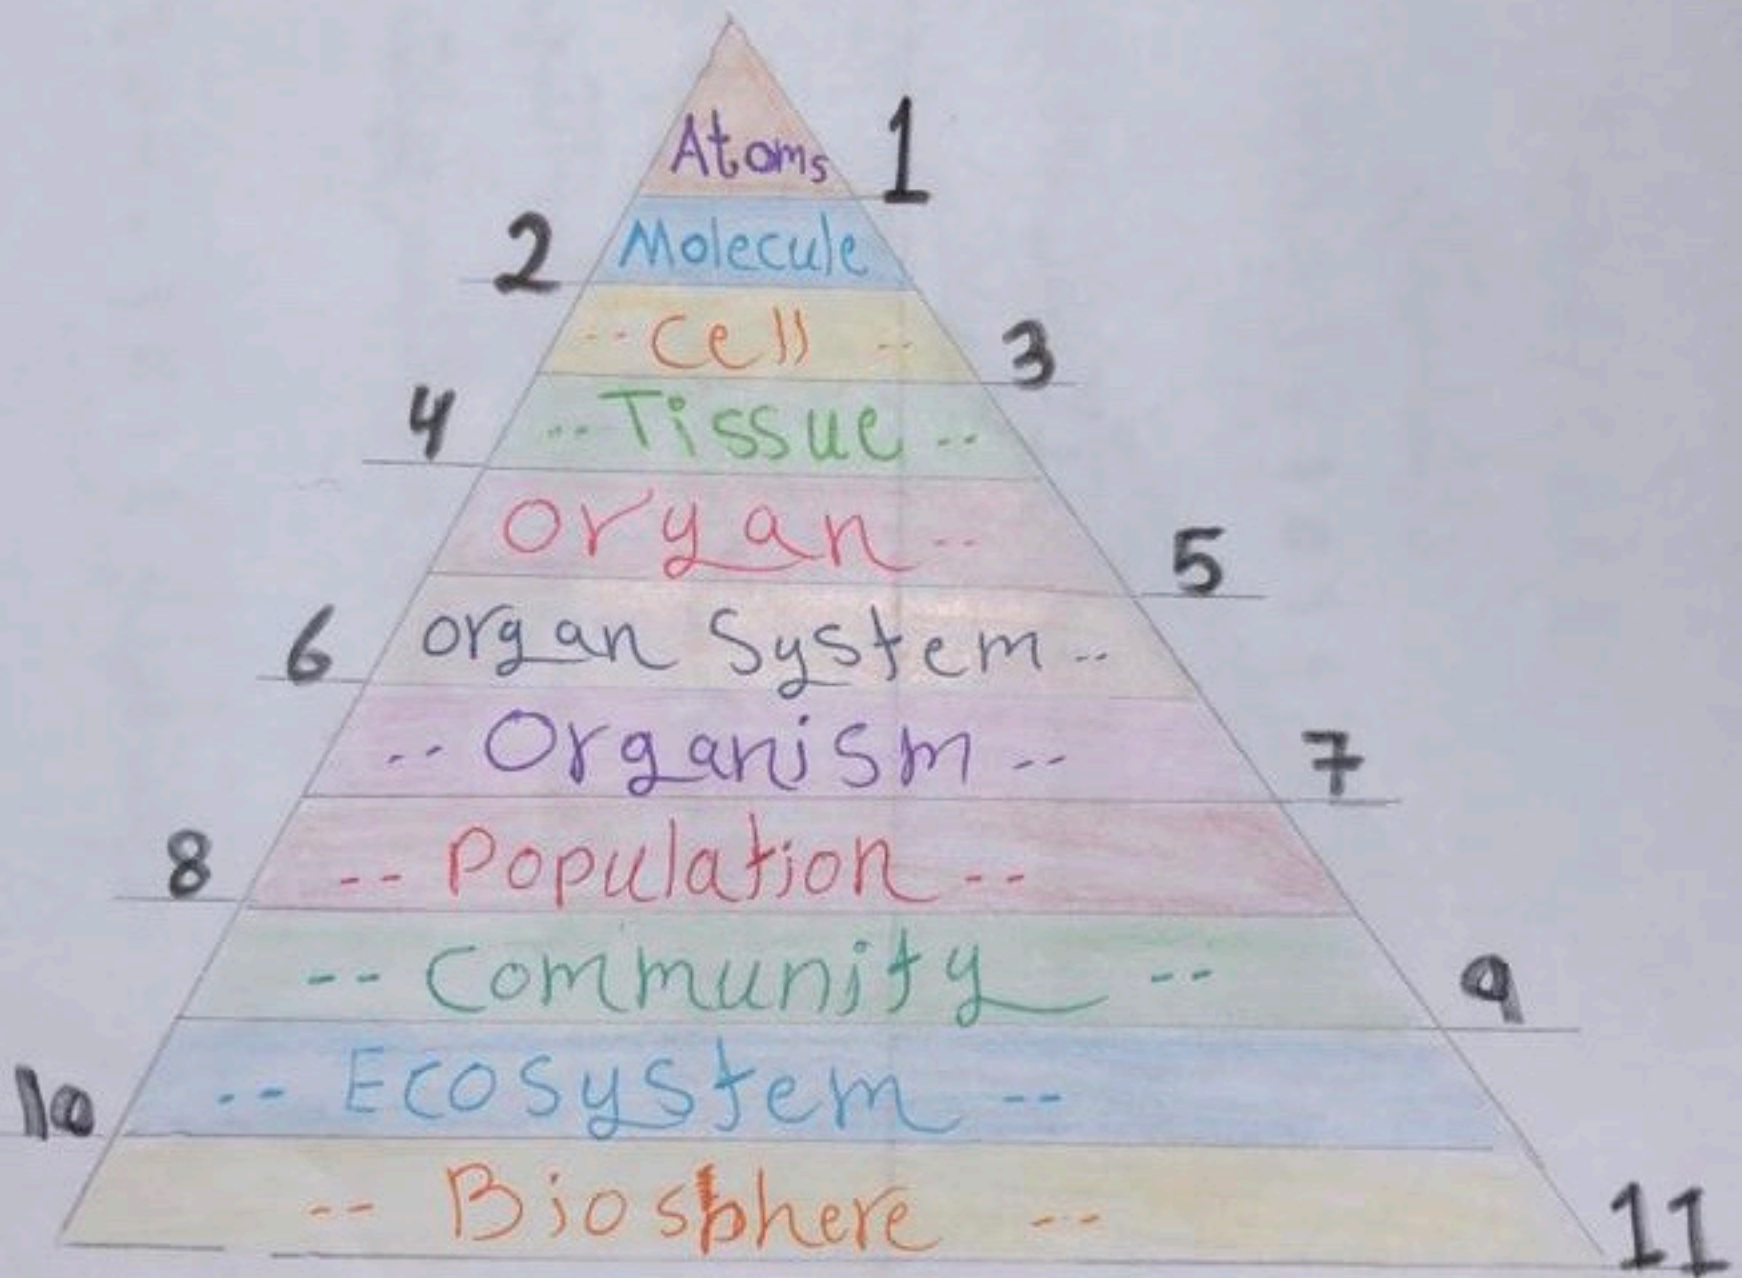 Atoms 1
2 Molecule
-- Cell -- 3
4 -- Tissue --
organ -- 5
6 organ System --
-- Organism -- 7
8 -- Population --
-- Community -- 9
10 -- Ecosystem --
-- Biosphere -- 11